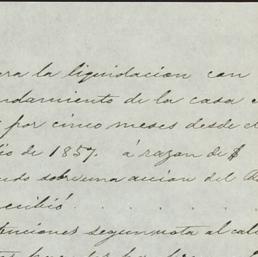 ra la liquidacion con
ndamiento de la casa
por cinco meses desde
io de 1857. á razon de $
sobre una accion del
recibió . . . .
segun nota al